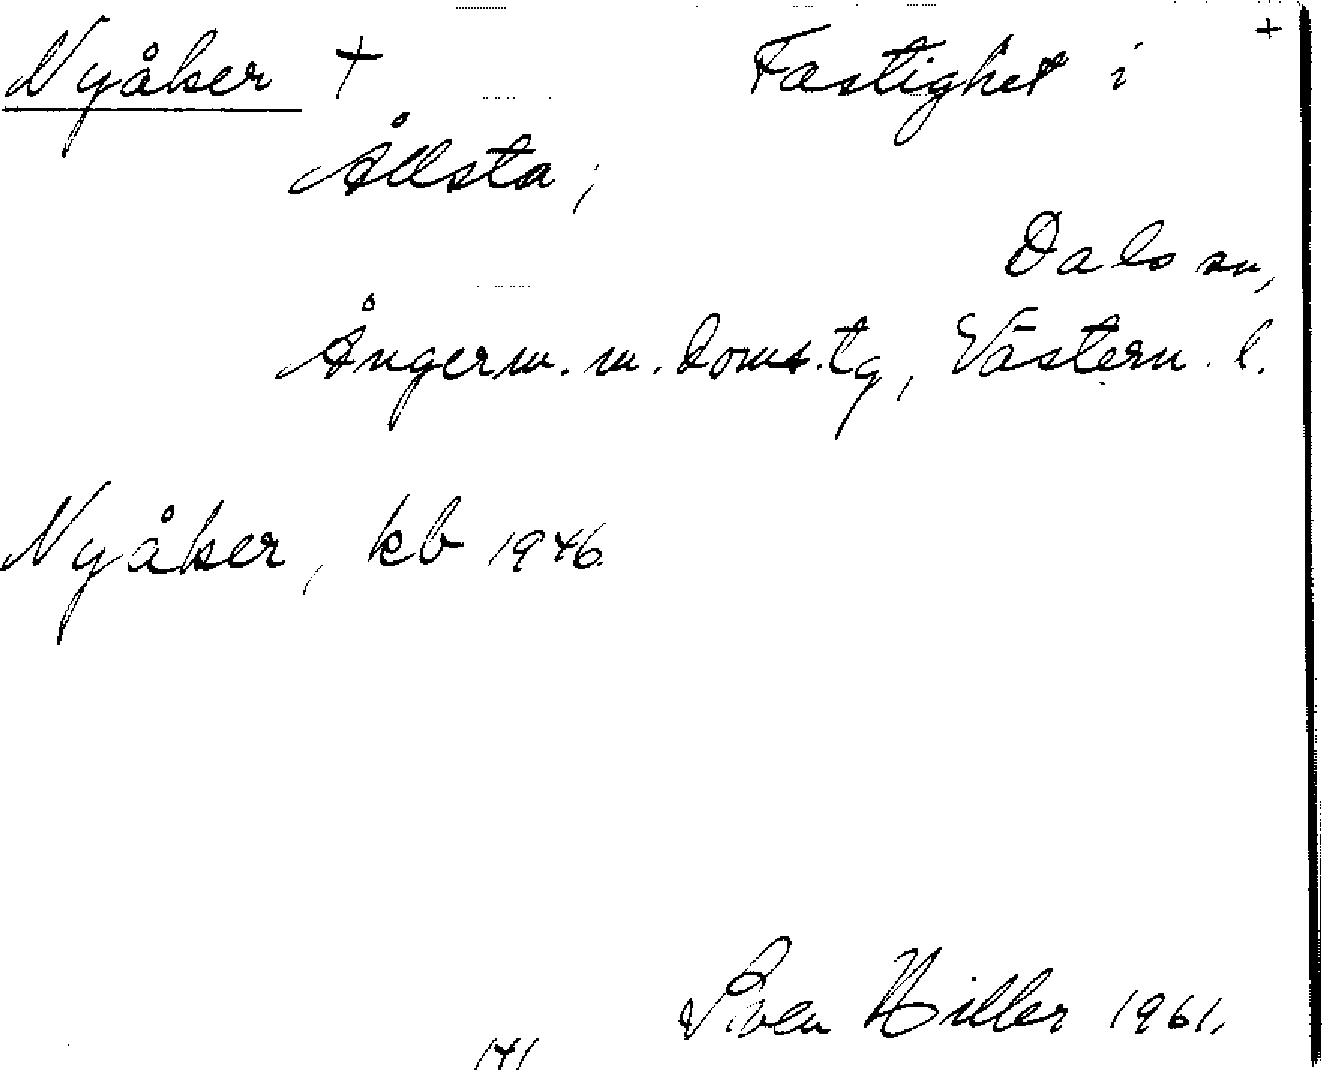 Nyåker + Fastighet i +
Ållsta,
Dals sn,
Ångerm. m. doms.tg, Västern. l.
Nyåker, kb 1946.
Sven Hiller 1961.
141